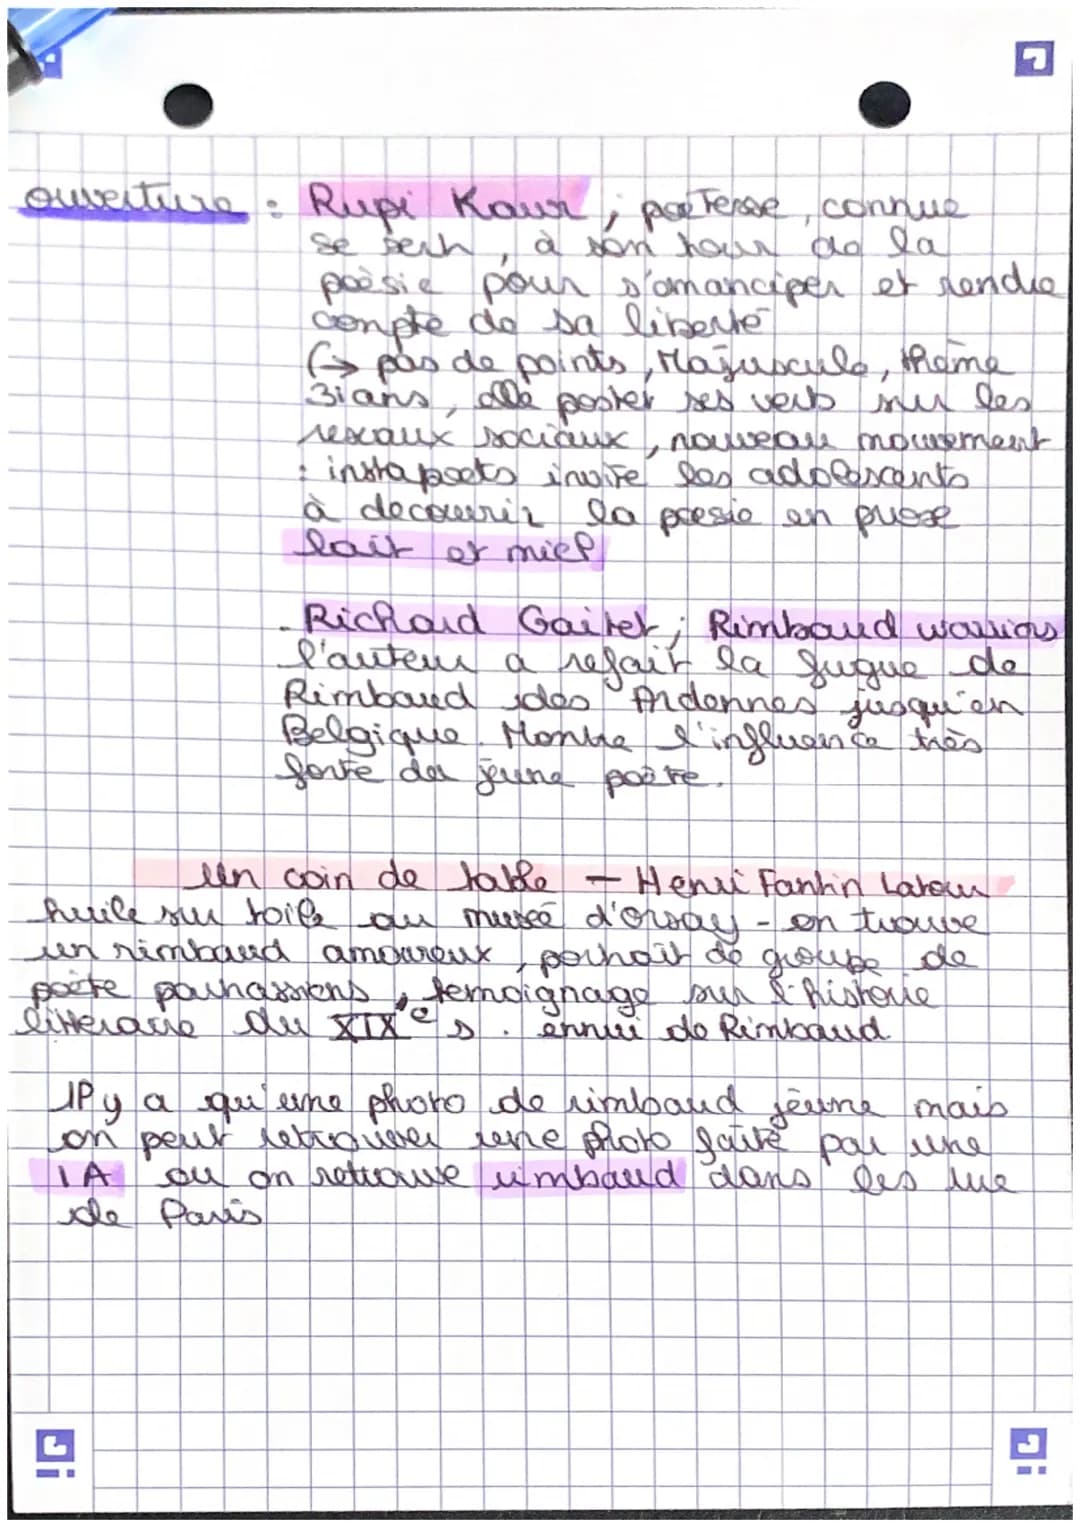 ouverture : Rupi Kaur ; poetesse, connue
se sert, à son tour de la
poèsie pour s'emanciper et rendre
compte de sa liberté
(→ pas de points, Majuscule, thème
31 ans, elle poster ses vers sur les
reseaux sociaux, nouveau mouvement
: instapoets invite les adolescents
à decouvrir la poesie en prose
lait et miel
- Richard Gaitet ; Rimbaud warriors
l'auteur a refait la fugue de
Rimbaud des Ardennes jusqu'en
Belgique. Montre l'influence très
forte du jeune poète.
Un coin de table - Henri Fantin Latour
huile sur toile au museé d'orsay - on trouve
un rimbaud amoureux, portrait de groupe de
poète parnassiens, temoignage sur l'histoire
litteraire du XIX e s. ennui de Rimbaud
Il y a qu'une photo de rimbaud jeune mais
on peut retrouver une photo faite par une
IA ou on retrouve rimbaud dans les rue
de Paris